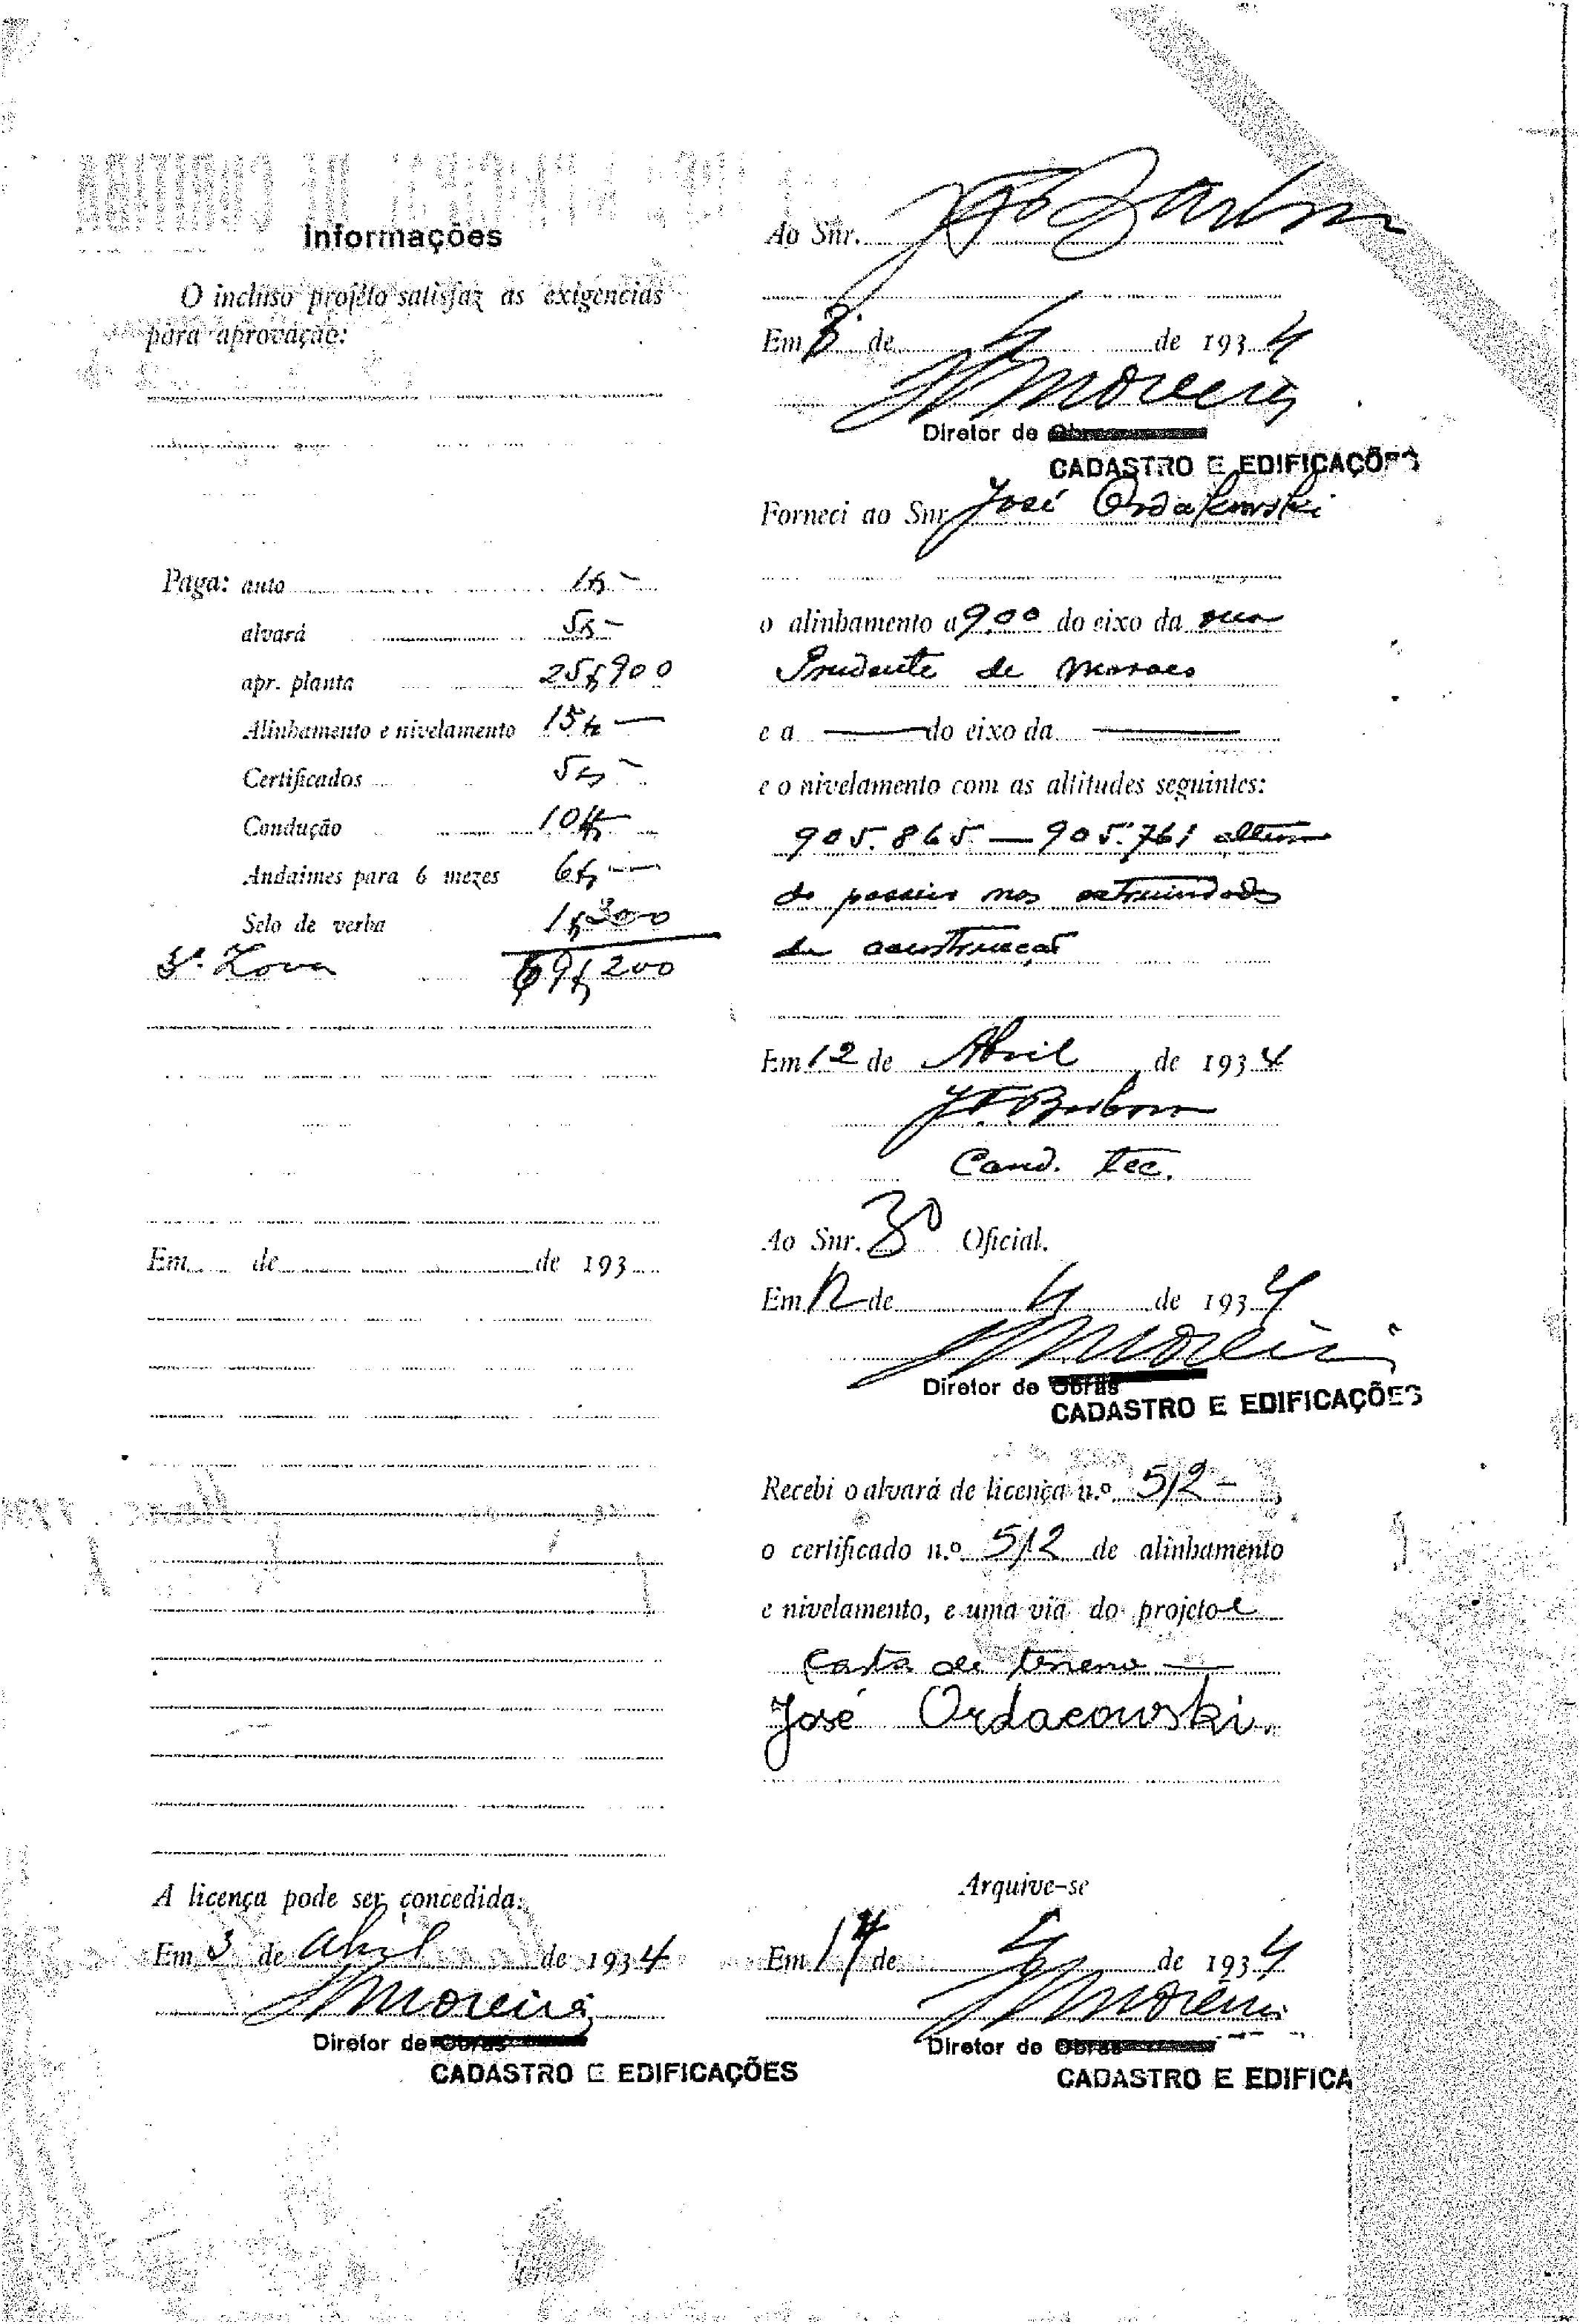 Informações
O incluso projéto satisfaz as exigencias
para aprovação:
Paga: auto 1$-
alvará 5$-
apr. planta 25$900
Alinhamento e nivelamento 15$—
Certificados 5$-
Condução 10$
Andaimes para 6 mezes 6$—
Selo de verba 1$300
3ª Zona 69$200
Em de de 193
A licença pode ser concedida.
Em 3 de Abril de 1934
Moreira
Diretor de Obras
CADASTRO E EDIFICAÇÕES
Ao Snr.
Em de 4 de 1934
Moreira
Diretor de Obras
CADASTRO E EDIFICAÇÕES
Forneci ao Snr José Ordakowski
o alinhamento a 9.00 do eixo da rua
Prudente de Moraes
e a — do eixo da —
e o nivelamento com as altitudes seguintes:
905.865 — 905.761 altura
do passeio nas extremidades
da construcção
Em 12 de Abril de 1934
J.F. Barbosa
Cond. Tec.
Ao Snr. 3º Oficial.
Em 12 de 4 de 1934
Moreira
Diretor de Obras
CADASTRO E EDIFICAÇÕES
Recebi o alvará de licença n.º 512 -
o certificado n.º 512 de alinhamento
e nivelamento, e uma via do projeto e
Carta de terreno —
José Ordacowski.
Arquive-se
Em 17 de 4 de 1934
Moreira
Diretor de Obras
CADASTRO E EDIFICA